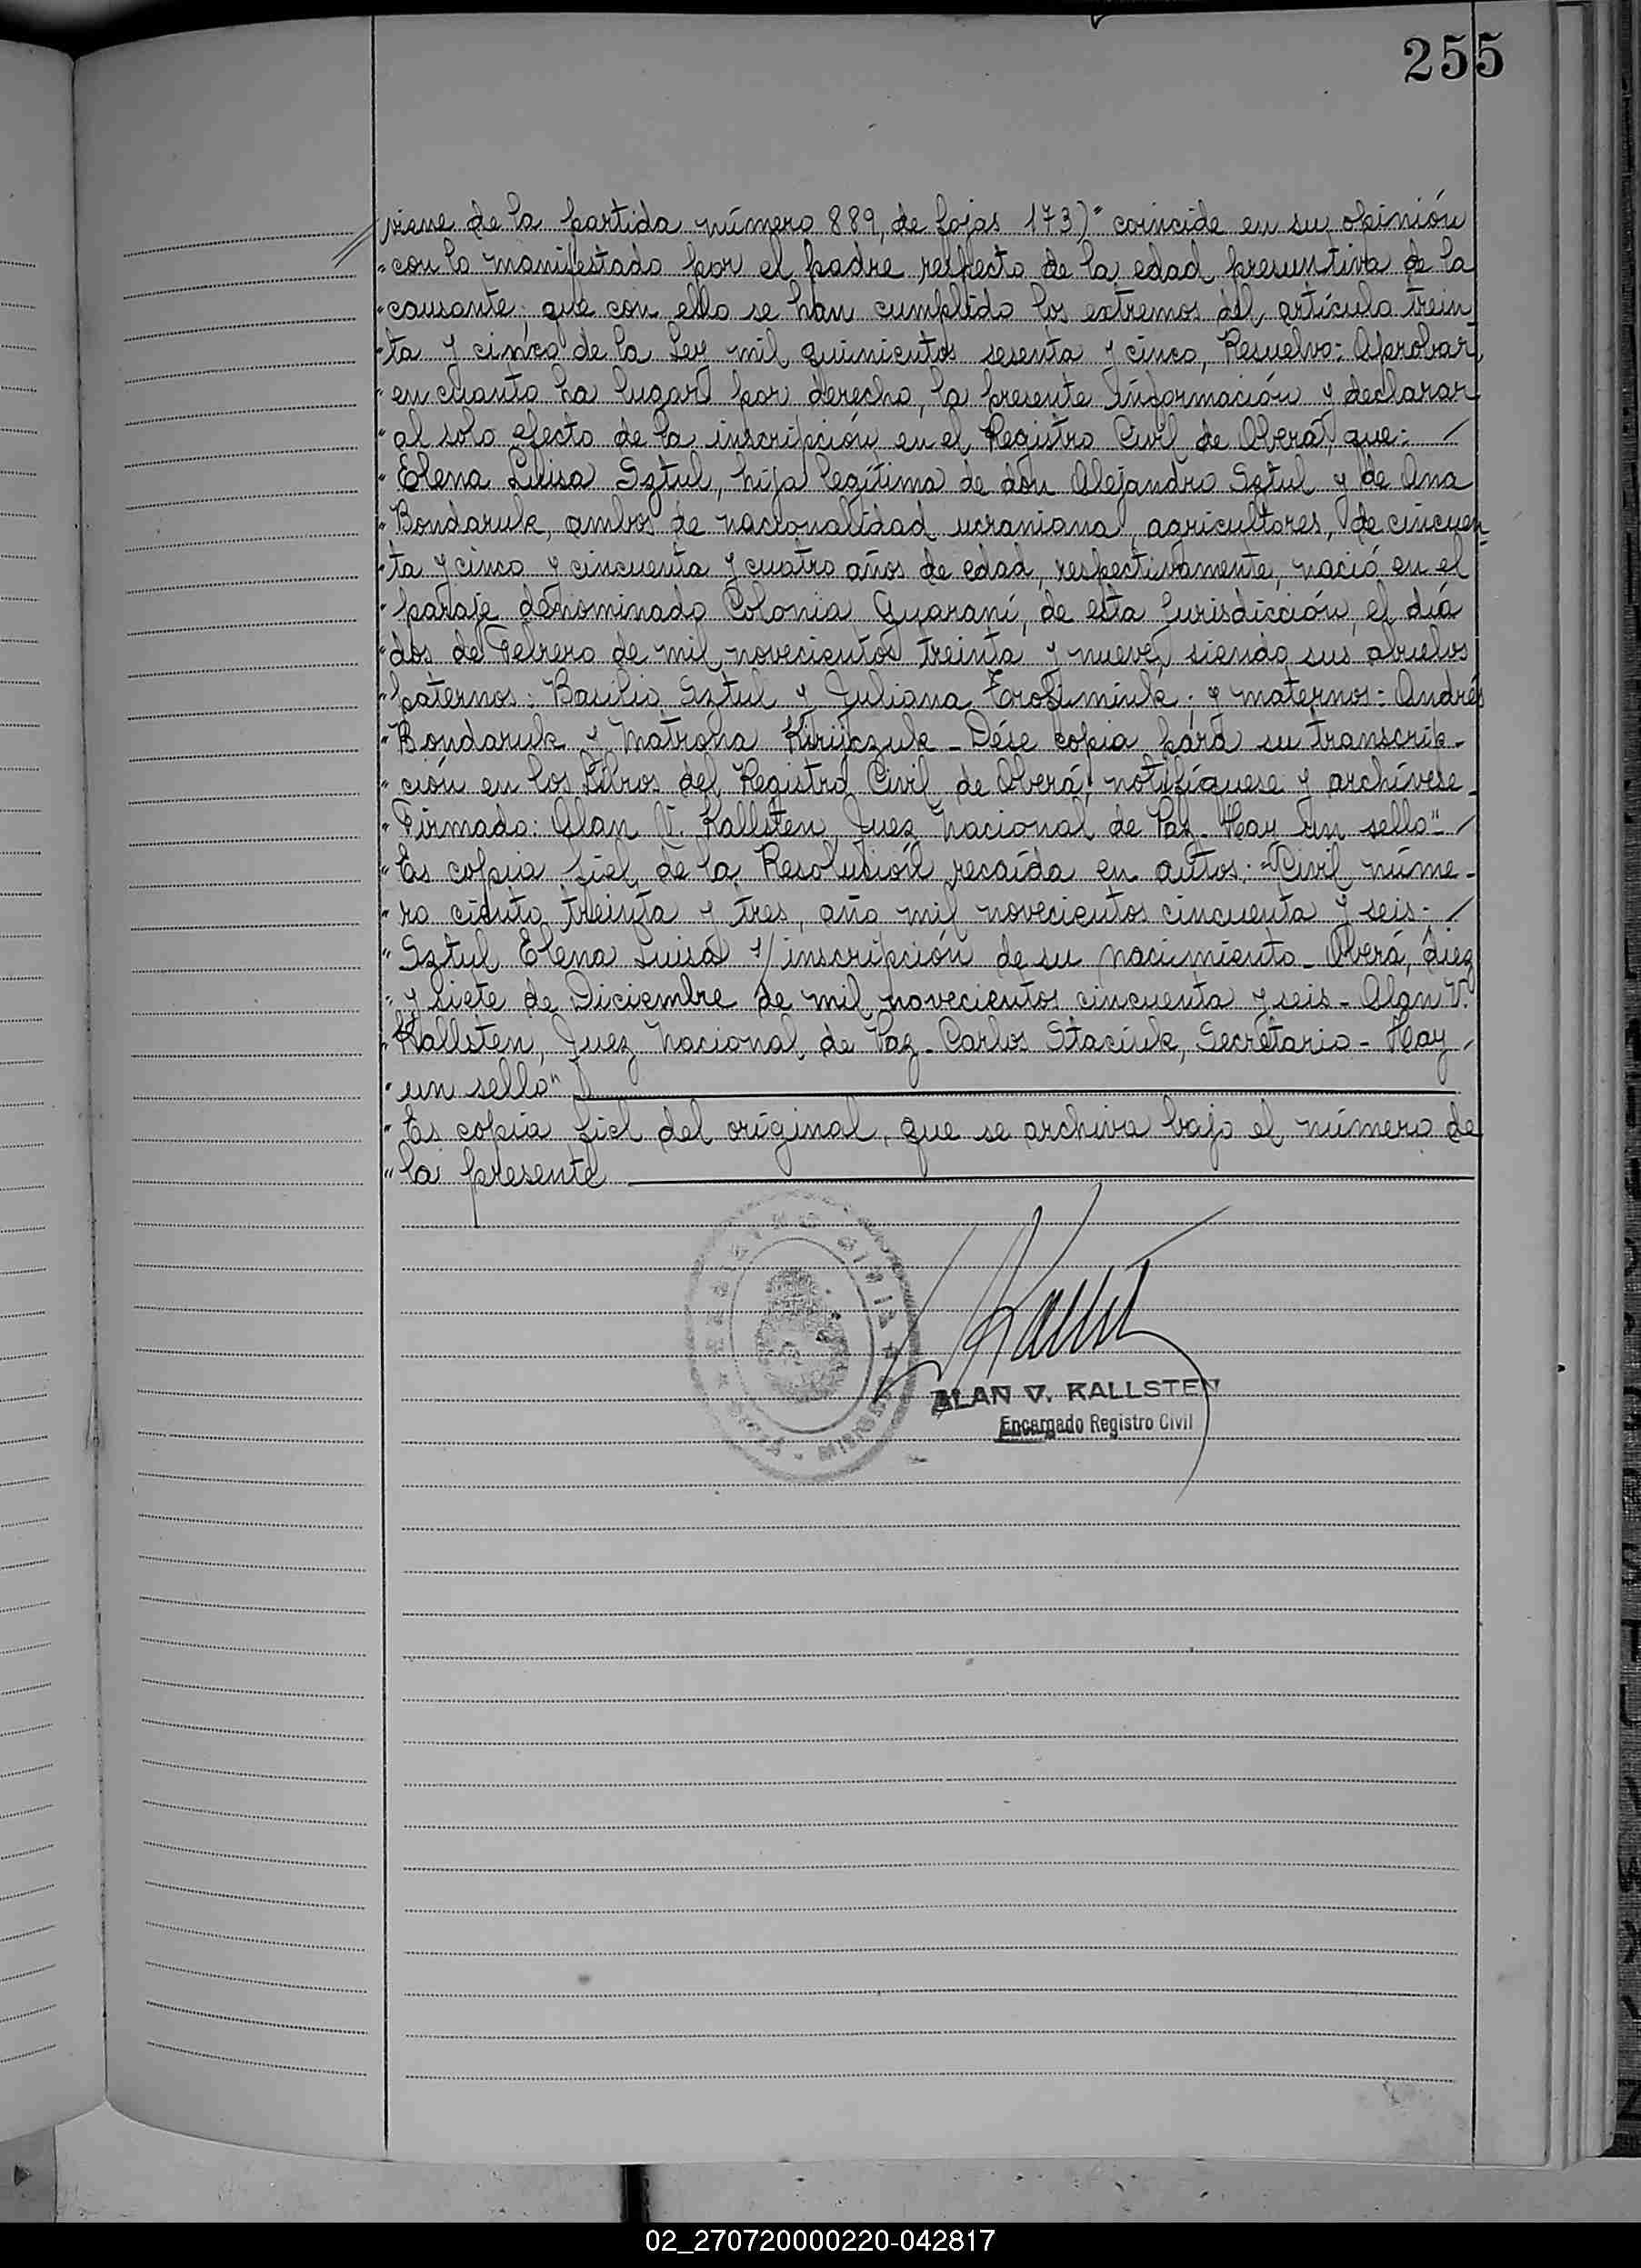 255
// viene de la partida número 889, de fojas 173)" coincide en su opinión
"con lo manifestado por el padre respecto de la edad presuntiva de la
"causante; que con ello se han cumplido los extremos del artículo trein
"ta y cinco de la Ley mil quinientos sesenta y cinco, Resuelvo: Aprobar
"en cuanto ha lugar por derecho, la presente información y declarar
"al solo efecto de la inscripción en el Registro Civil de Oberá, que: /
"Elena Luisa Sztul, hija legítima de don Alejandro Sztul y de Ana
"Bondaruk, ambos de nacionalidad ucraniana, agricultores, de cincuen-
"ta y cinco y cincuenta y cuatro años de edad, respectivamente, nació en el
"paraje denominado Colonia Guaraní, de esta Jurisdicción, el día
"dos de Febrero de mil novecientos treinta y nueve, siendo sus abuelos
"paternos: Basilio Sztul y Juliana; y maternos: Andrés
"Bondaruk y Matrona - Dése copia para su transcrip-
"ción en los Libros del Registro Civil de Oberá; notifíquese y archívese-
"Firmado: Alan V. Kallsten, Juez Nacional de Paz- Hay un sello"- /
"Es copia fiel de la Resolución recaída en autos: "Civil núme-
"ro ciento treinta y tres, año mil novecientos cincuenta y seis- /
"Sztul Elena Luisa s/ inscripción de su nacimiento- Oberá, diez
"y siete de Diciembre de mil novecientos cincuenta y seis- Alan V.
"Kallsten, Juez Nacional de Paz- Carlos Staciuk, Secretario- Hay /
"un sello"
"Es copia fiel del original, que se archiva bajo el número de
"la presente
ALAN V. KALLSTEN
Encargado Registro Civil
02_270720000220-042817